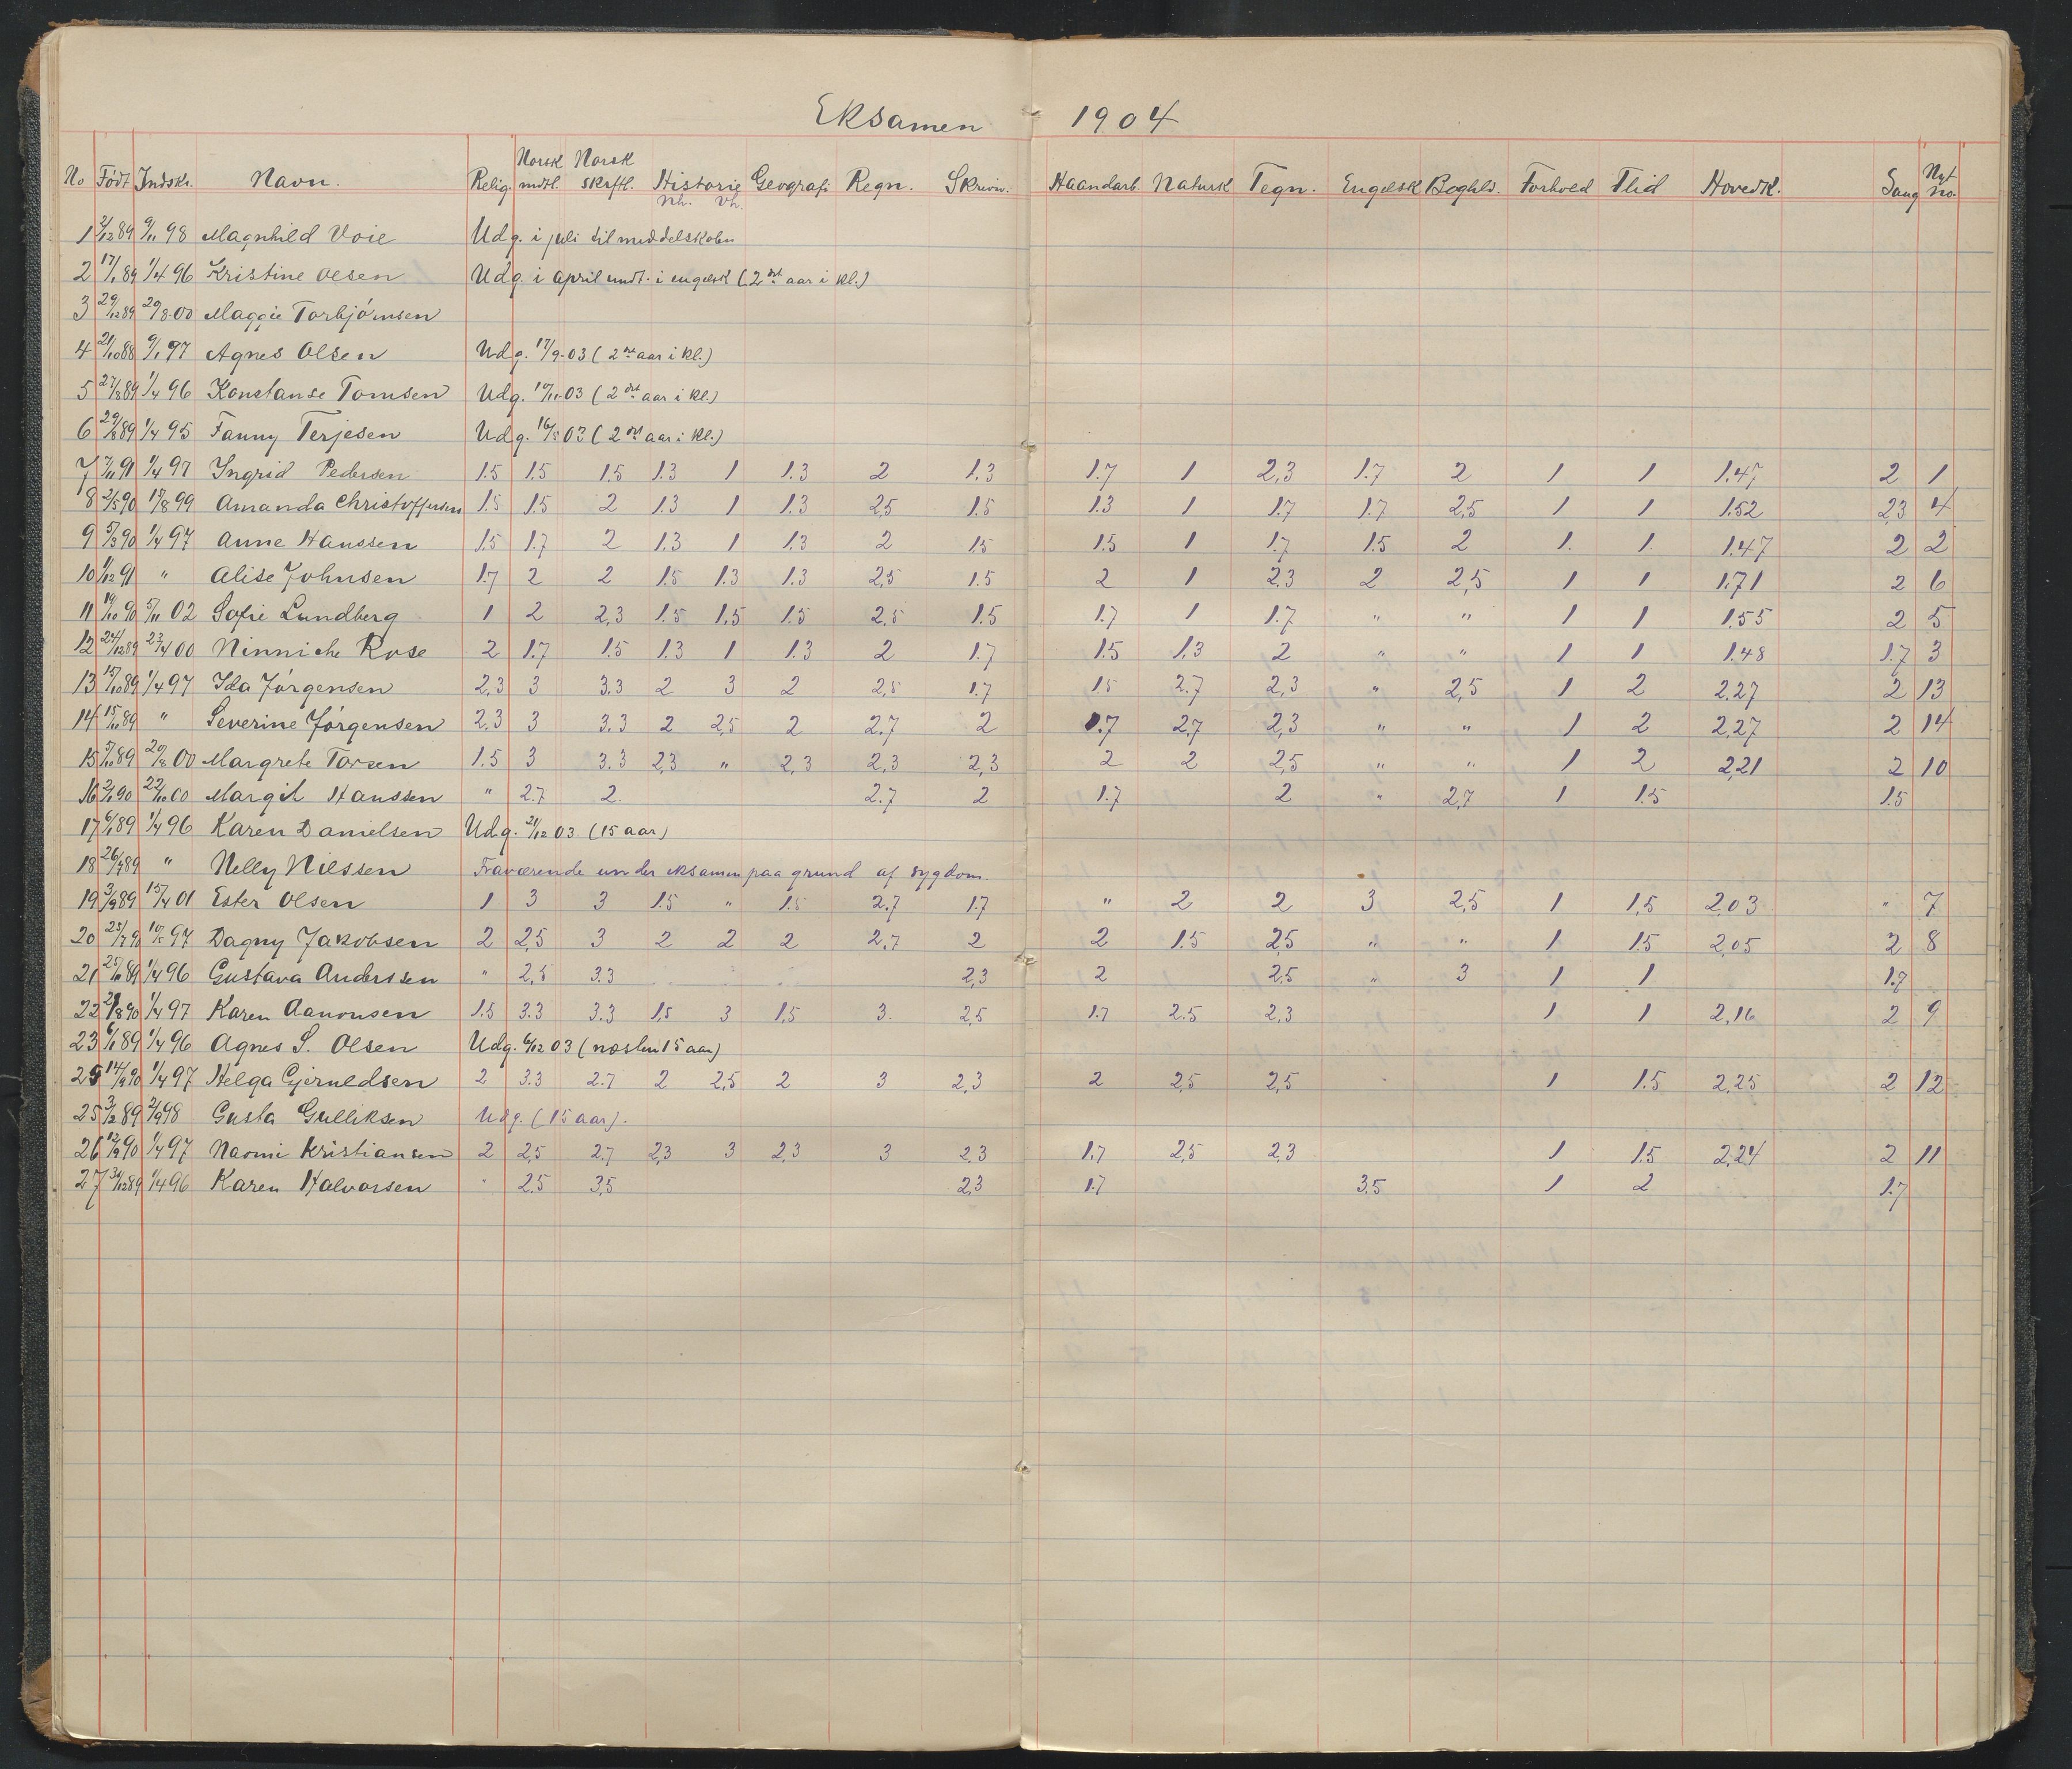 Eksamen 1904
No Født Indskr. Navn. Relig. Norsk mdtl. Norsk skrftl. Historie Nh. Vh. Geografi Regn. Skrivn. Haandarb. Naturk Tegn. Engelsk Boghld. Forhold Flid Hovedk. Sang Nyt no.
1 2/12 89 9/11 98 Magnhild Voie Udg. i juli til middelskolen
2 17/1 89 1/4 96 Kristine Olsen Udg. i april undt. i engelsk (2det aar i kl.)
3 29/12 89 20/8 00 Maggie Torbjörnsen
4 21/10 88 9/1 97 Agnes Olsen Udg. 17/9-03 (2det aar i kl.)
5 27/8 89 1/4 96 Konstanse Tomsen Udg. 10/11-03 (2det aar i kl.)
6 29/8 89 1/4 95 Fanny Terjesen Udg. 16/5 03 (2det aar i kl.)
7 7/11 91 1/4 97 Ingrid Pedersen 1.5 1.5 1.5 1.3 1 1.3 2 1.3 1.7 1 2,3 1.7 2 1 1 1.47 2 1
8 2/5 90 19/8 99 Amanda Christoffersen 1.5 1.5 2 1.3 1 1.3 2,5 1.5 1.3 1 1.7 1.7 2,5 1 1 1.52 2,3 4
9 5/3 90 1/4 97 Anne Hanssen 1.5 1.7 2 1.3 1 1.3 2 1.5 1.5 1 1.7 1.5 2 1. 1. 1.47 2 2
10 1/12 91 " Alise Johnsen 1.7 2 2 1.5 1.3 1.3 2,5 1.5 2 1 2.3 2 2,5 1 1 1.71 2 6
11 19/10 90 5/11 02 Sofie Lundberg 1 2 2,3 1.5 1,5 1.5 2,5 1.5 1.7 1 1.7 " " 1 1 1,55 2 5
12 24/12 89 23/4 00 Ninniche Rose 2 1.7 1.5 1.3 1 1.3 2 1.7 1.5 1.3 2 " " 1 1 1.48 1.7 3
13 15/10 89 1/4 97 Ida Jörgensen 2,3 3 3.3 2 3 2 2,5 1.7 1.5 2.7 2,3 " 2,5 1 2 2,27 2 13
14 15/10 89 " Severine Jörgensen 2.3 3 3.3 2 2,5 2 2.7 2 1.7 2,7 2,3 " " 1 2 2,27 2 14
15 5/10 89 20/8 00 Margrete Tarsen 1.5 3 3.3 2,3 " 2,3 2,3 2,3 2 2 2,5 " " 1 2 2,21 2 10
16 2/1 90 22/10 00 Margit Hanssen " 2.7 2. 2.7 2 1.7 2 " 2,7 1 1.5 1.5
17 6/1 89 1/4 96 Karen Danielsen Udg. 21/12 03 (15 aar)
18 26/4 89 " Nelly Nilssen Fraværende under eksamen paa grund af sygdom.
19 3/9 89 15/4 01 Ester Olsen 1 3 3 1.5 " 1.5 2.7 1.7 " 2 2 3 2,5 1 1,5 2,03 " 7
20 25/7 90 10/5 97 Dagny Jakobsen 2 2,5 3 2 2 2 2.7 2 2 1.5 2,5 " " 1 1.5 2,05 2 8
21 25/11 89 1/4 96 Gustava Anderssen " 2,5 3.3 2,3 2 2.5 " 3 1 1 1.7
22 21/8 90 1/4 97 Karen Aanonsen 1.5 3.3 3.3 1,5 3 1,5 3. 2,5 1.7 2.5 2,3 1 1 2,16 2 9
23 6/1 89 1/4 96 Agnes S. Olsen Udg. 6/12 03 (næsten 15 aar)
25 14/9 90 1/4 97 Helga Gjeruldsen 2 3.3 2.7 2 2,5 2 3 2,3 2 2,5 2,5 1 1.5 2,25 2 12
25 3/2 89 2/9 98 Gusta Gulliksen Udg. (15 aar).
26 12/9 90 1/4 97 Naomi Kristiansen 2 2,5 2.7 2,3 3 2,3 3 2,3 1.7 2,5 2,3 1 1.5 2,24 2 11
27 31/12 89 1/4 96 Karen Halvorsen " 2.5 3,5 2,3 1.7 3,5 1 2 1.7